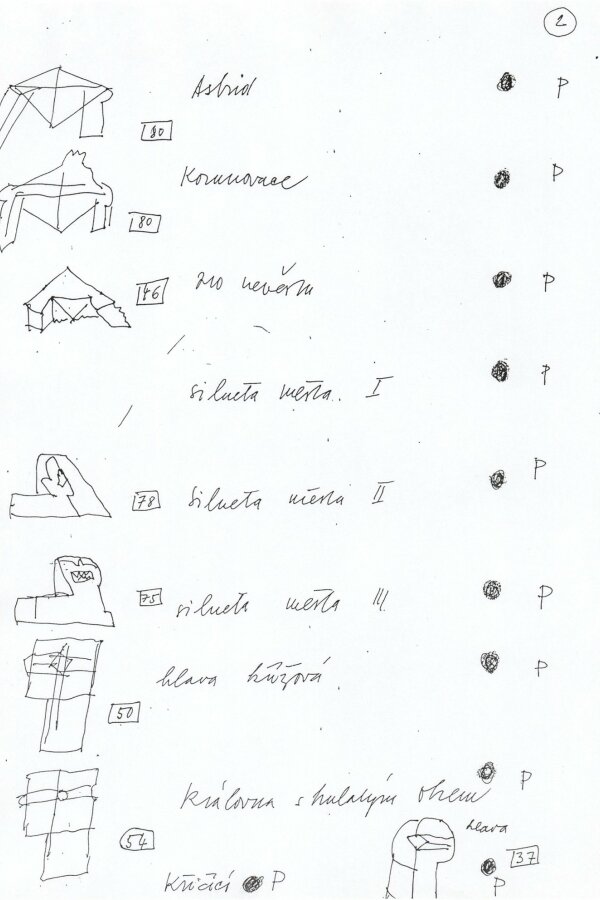 2
Astrid P
80
Korunovace P
80
nevěsta P
46
silueta města I P
silueta města II P
78
silueta města III P
75
hlava křížová P
50
Královna s kulatým okem P
54
hlava
37
P
Křičící P